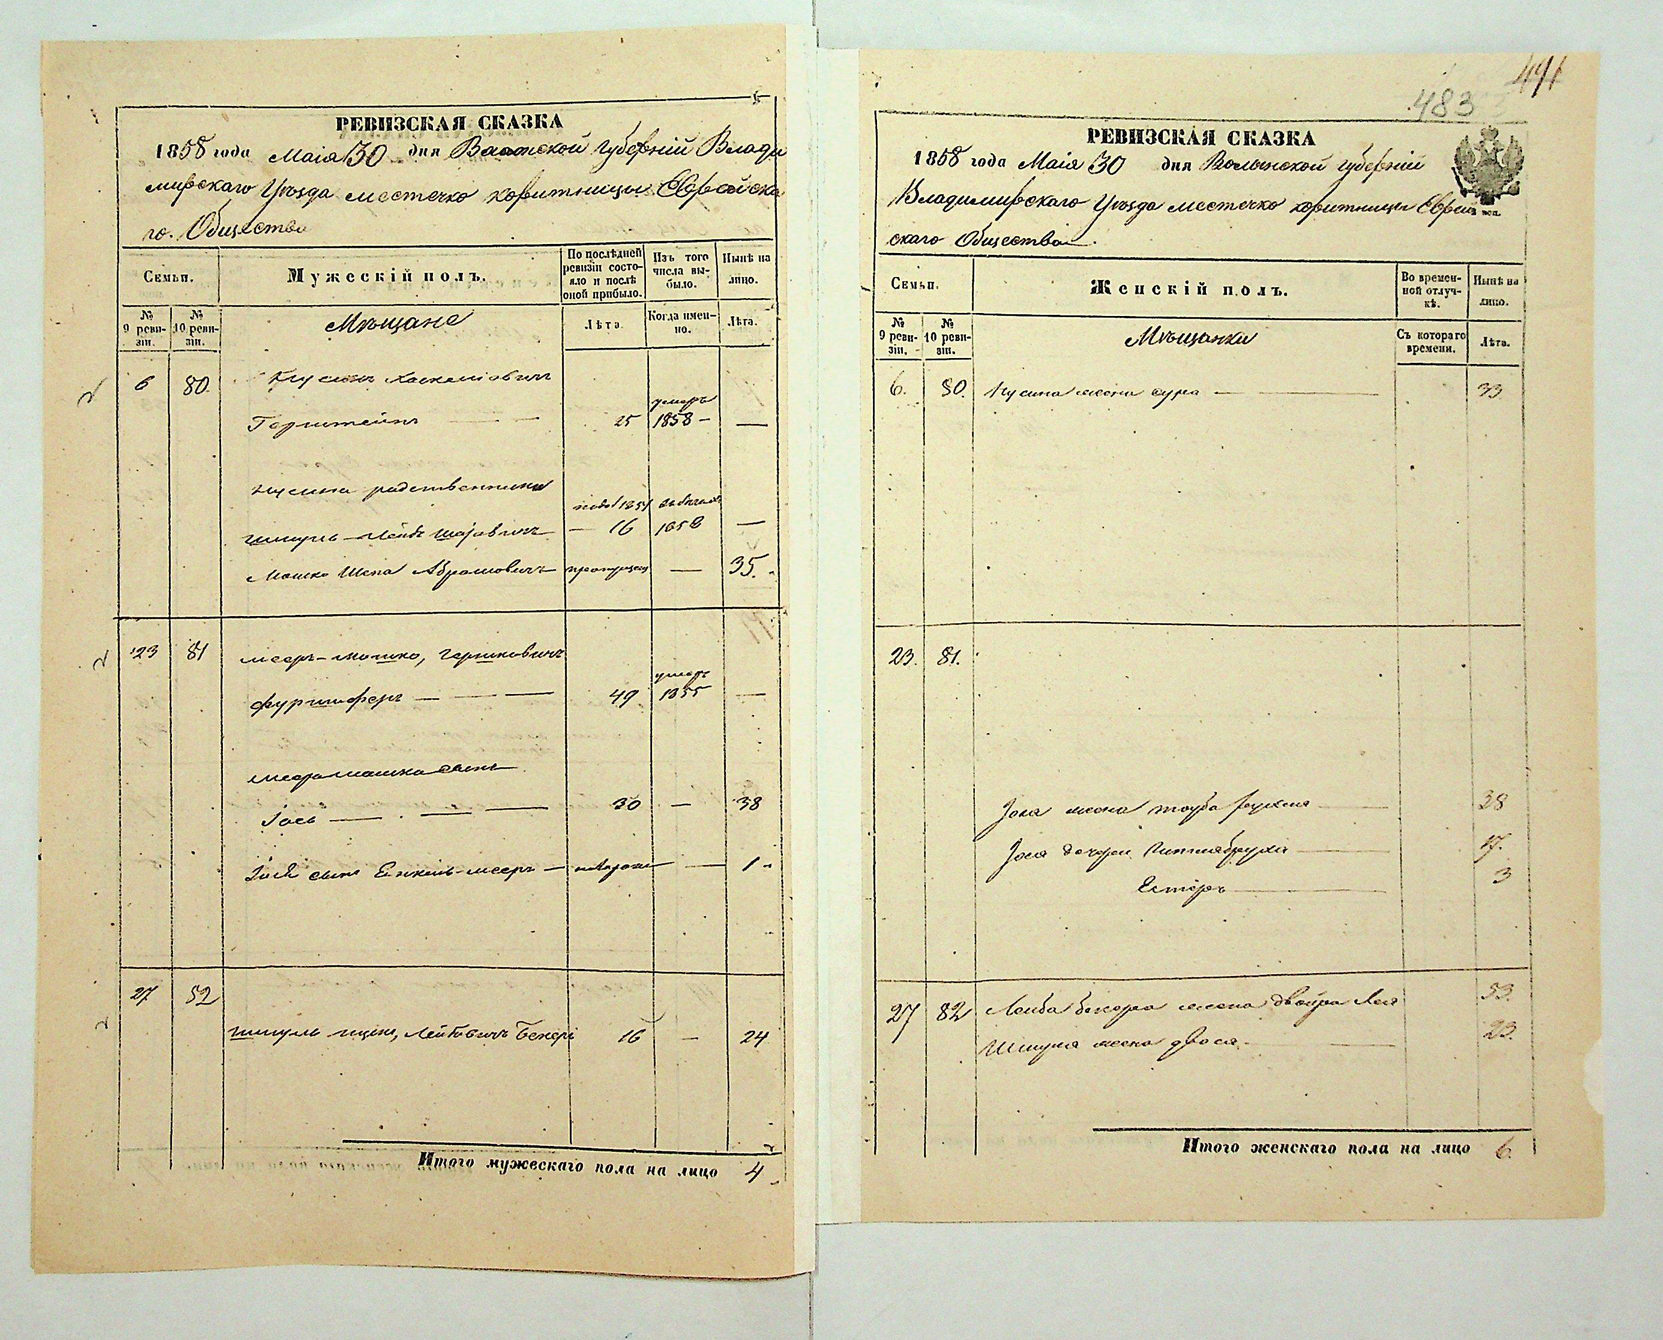 РЕВИЗСКАЯ СКАЗКА
1858 года Маія 30 дня Волынской губерніи Влади
мирскаго Уѣзда местечко Коритницы Еврейска
го. Общества
Семьи.
Мужескій полъ.
По послѣдней ревизіи состояло и послѣ оной прибыло.
Изъ того числа выбыло.
Нынѣ на лицо.
№ 9 ревизіи.
№ 10 ревизіи.
Мѣщане
Лѣта.
Когда именно.
Лѣта.
6 80 Нусинъ Хаскелiовичъ
Герштейнъ 25 умеръ 1858 —
Нусина родственники
Шмуль-Лейбъ 16 1858 —
Мошко Шепа Абрамовичъ пропущенъ — 35.
23 81 Мееръ-Мошко, Гершковичъ
Фурштферъ 49 умеръ 1855 —
Меера Мошка сынъ
Іось 30 — 38
Іося сынъ Енкель-Мееръ — новорож — 1
27 82
Шмуль Ицик, Лейбовичъ Бекеръ 16 — 24
Итого мужескаго пола на лицо 4
491
483
РЕВИЗСКАЯ СКАЗКА
1858 года Маія 30 дня Волынской губерніи
Владимирскаго Уѣзда местечко Коритницы Еврей
скаго Общества.
Семьи.
Женскій полъ.
Во временной отлучкѣ.
Нынѣ на лицо.
№ 9 ревизіи.
№ 10 ревизіи.
Мѣщанки
Съ котораго времени.
Лѣта.
6. 80. Нусина жена Сура — 33
23. 81.
Іоса жена Тауба — 38
Іося дочери — 17.
Естеръ — 3
27 82 Лейба Бекера жена Двойра Лея 53.
Шмуля жена Двося — 23.
Итого женскаго пола на лицо 6.